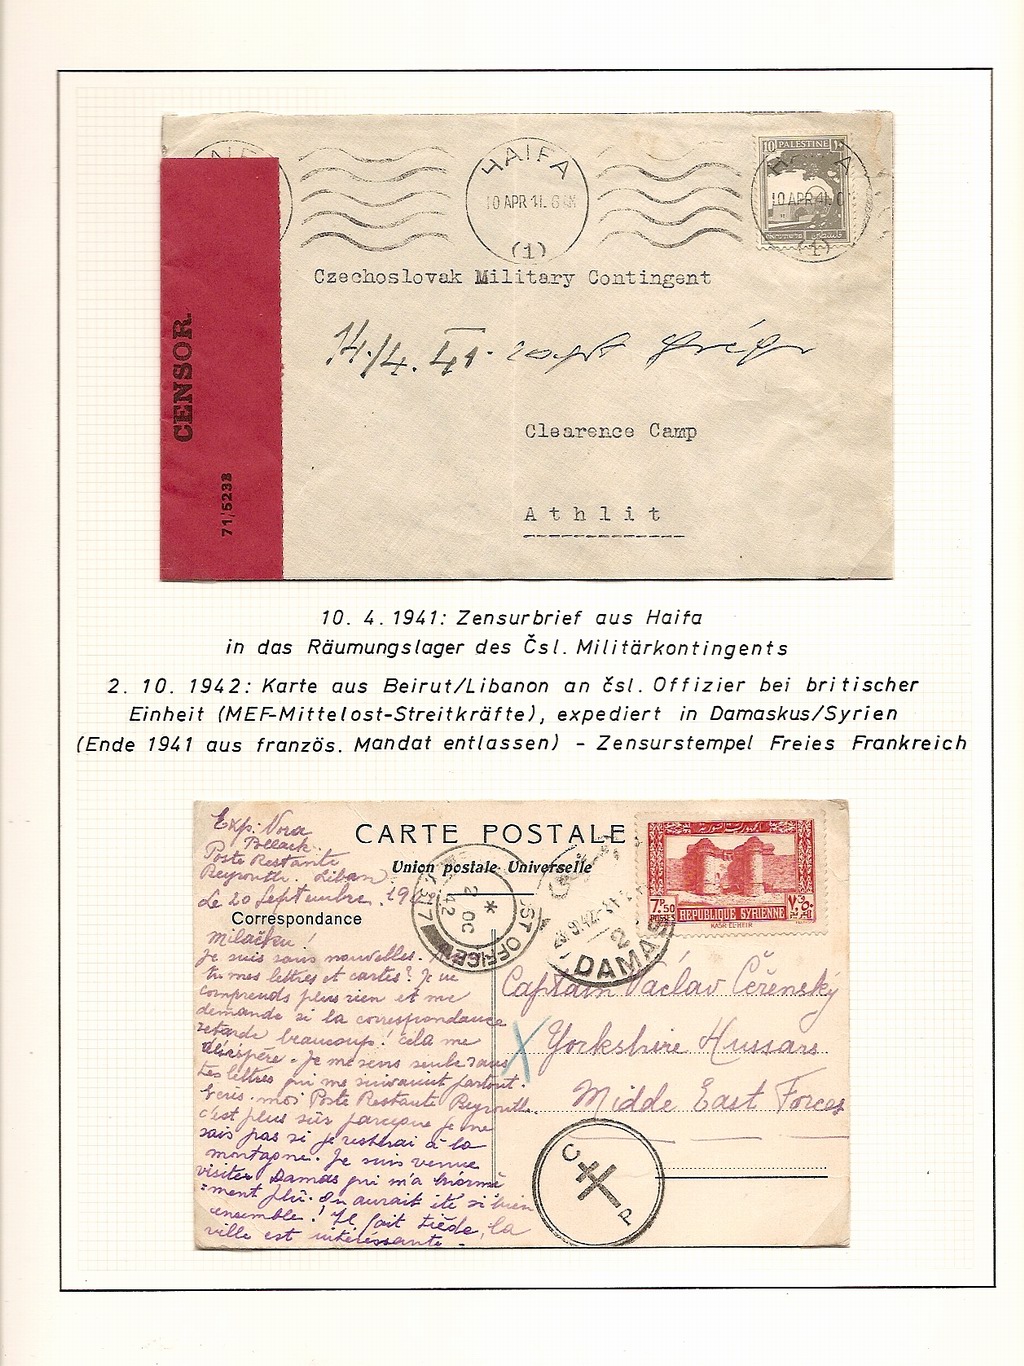 HAIFA
10 APR 41. 6 AM
(1)
10 PALESTINE
10 APR 41
(1)
CENSOR.
71/5238
Czechoslovak Military Contingent
14./4. 41.
Clearence Camp
Athlit
10. 4. 1941: Zensurbrief aus Haifa
in das Räumungslager des Čsl. Militärkontingents
2. 10. 1942: Karte aus Beirut/Libanon an čsl. Offizier bei britischer
Einheit (MEF-Mittelost-Streitkräfte), expediert in Damaskus/Syrien
(Ende 1941 aus französ. Mandat entlassen) - Zensurstempel Freies Frankreich
CARTE POSTALE
Union postale Universelle
Correspondance
Exp: Nora
Pollack.
Poste Restante
Beyrouth. Liban
Le 20 Septembre. 194
Milačku!
Je suis sans nouvelles.
tu mes lettres et cartes? Je ne
comprends plus rien et me
demande si la correspondance
retarde beaucoup! Cela me
désespère. Je me sens seule sans
tes lettres qui me suivaient partout.
Ecris-moi Poste Restante Beyrouth.
c'est plus sûr parceque je ne
sais pas si je resterai à la
montagne. Je suis venue
visiter Damas qui m'a énormé
=ment plû. On aurait été si bien
ensemble! Il fait tiède, la
ville est intéréssante.
2 OC
42
DAMAS
7P.50
REPUBLIQUE SYRIENNE
KASR EL-HEIR
Captain Václav Čeřenský
Yorkshire Hussars
Midde East Forces
C
P